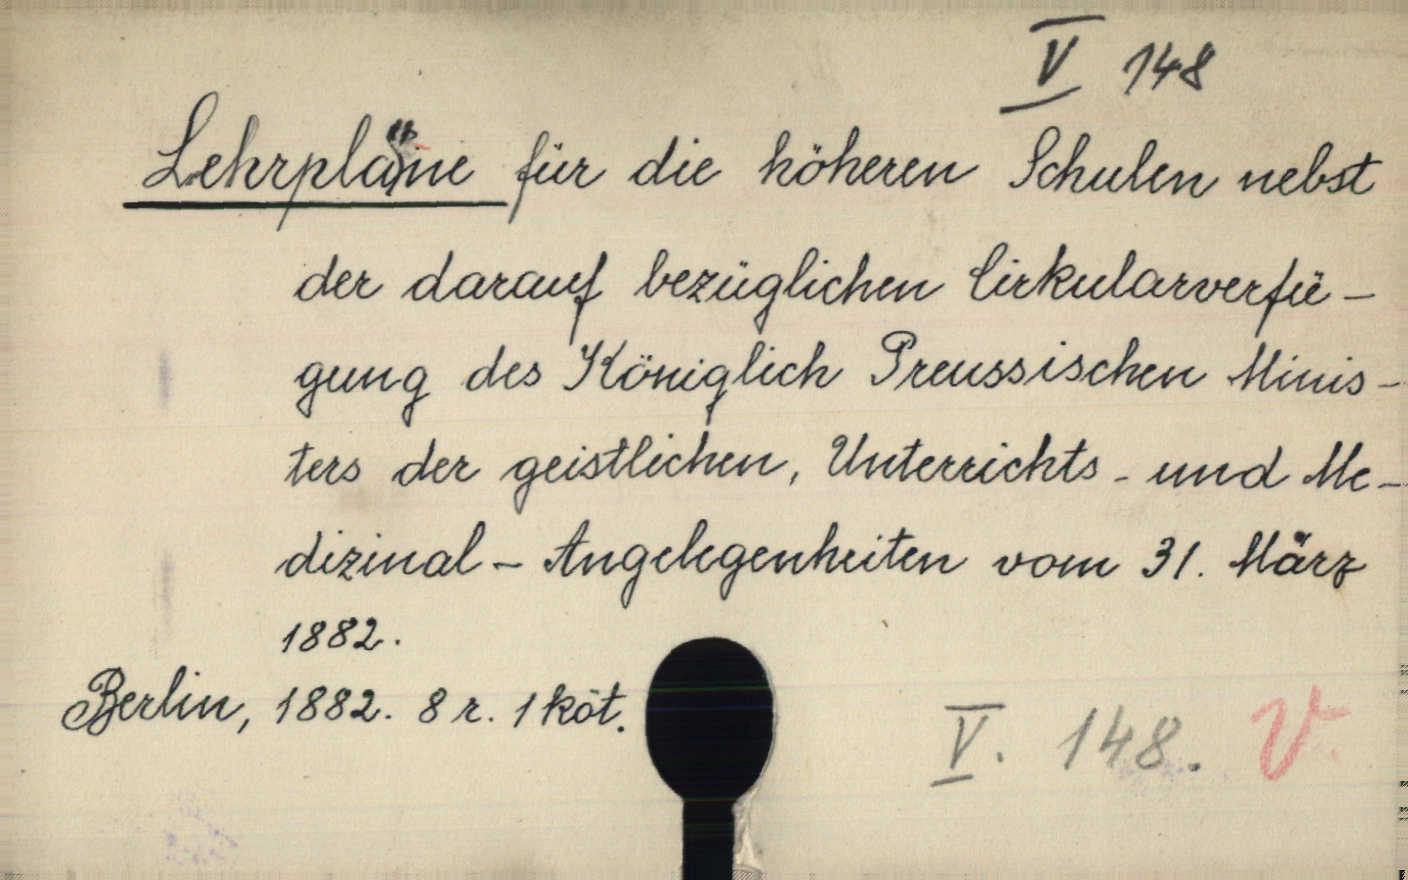 V 148
Lehrpläne für die höheren Schulen nebst
der darauf bezüglichen Cirkularverfü-
gung des Königlich Preussischen Minis-
ters der geistlichen, Unterrichts- und Me-
dizinal-Angelegenheiten vom 31. März
1882.
Berlin, 1882. 8 r. 1 köt.
V. 148. V.